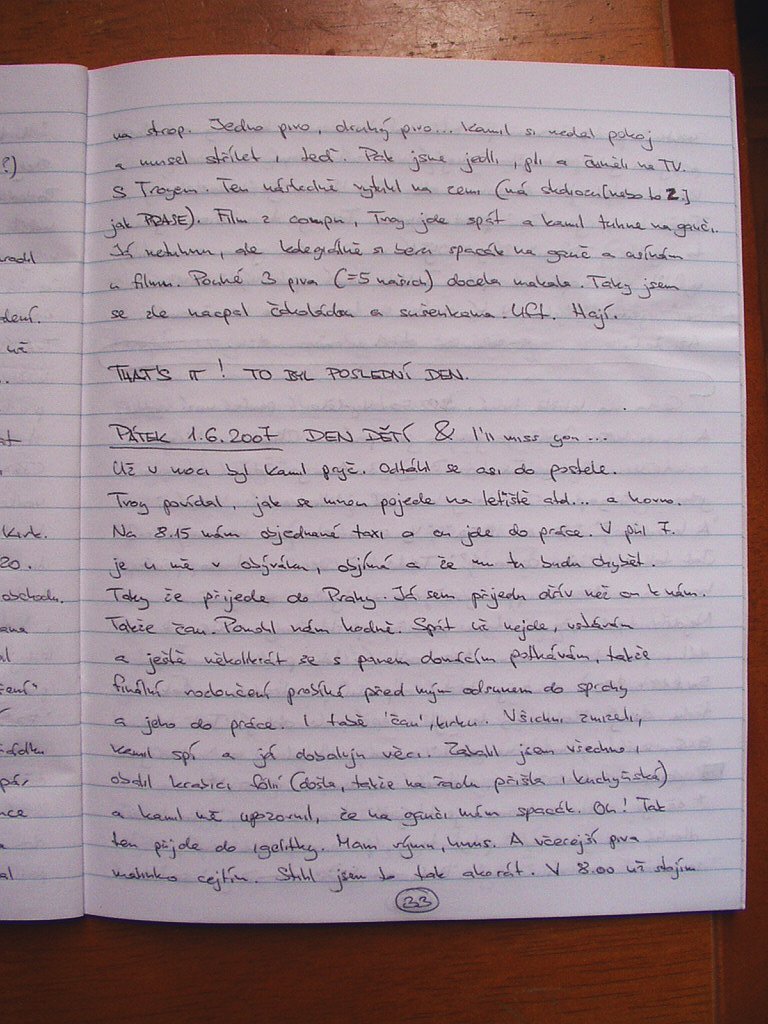 na strop. Jedno pivo, druhý pivo... Kamil si nedal pokoj
a musel střílet i teď. Pak jsme jedli, pili a čuměli na TV.
S Troyem. Ten následně vytuhl na zemi (má [nebo to 2.]
jak PRASE). Film z compu, Troy jde spát a Kamil tuhne na gauči.
?)
Já netuhnu, ale kolegiálně si beru spacák na gauč a usínám
u filmu. Pouhé 3 piva (=5 našich) docela makala. Taky jsem
se zle nacpal čokoládou a sušenkama. Uff. Hají.
THAT'S IT! TO BYL POSLEDNÍ DEN.
PÁTEK 1.6.2007 DEN DĚTÍ & I'll miss you...
Už v noci byl Kamil pryč. Odtáhl se asi do postele.
Troy povídal, jak se mnou pojede na letiště atd... a hovno.
Na 8.15 mám objednané taxi a on jde do práce. V půl 7.
je u mě v obýváku, objímá a že mu tu budu chybět.
Taky že přijede do Prahy. Já sem přijedu dřív než on k nám.
Takže čau. Pomohl nám hodně. Spát už nejde, vstávám
a ještě několikrát se s panem domácím potkávám, takže
finální rozloučení probíhá před mým odsunem do sprchy
a jeho do práce. I tobě 'čau', Kirku. Všichni zmizeli,
Kamil spí a já dobaluju věci. Zabalil jsem všechno i
obalil krabici fólií (došla, takže na řadu přišla i kuchyňská)
a Kamil mě upozornil, že na gauči mám spacák. Oh! Tak
ten přijde do igelitky. Mam rýmu, hnus. A včerejší piva
malinko cejtím. Stihl jsem to tak akorát. V 8.00 už stojím
33
Kirk.
20.
obchodu.